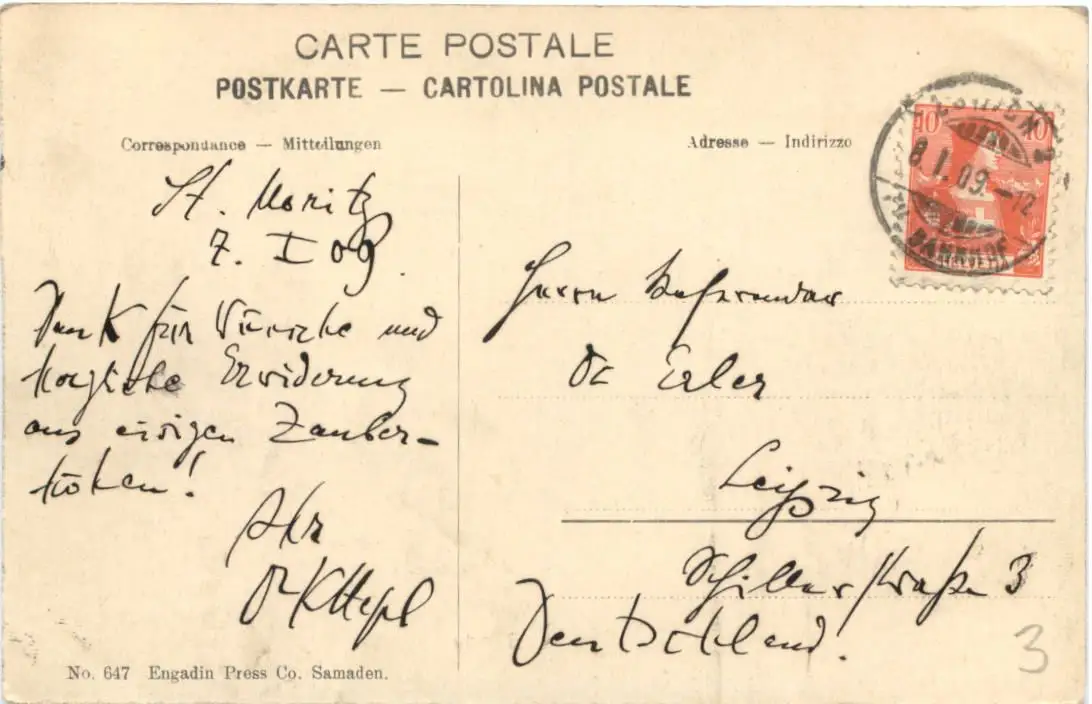 CARTE POSTALE
POSTKARTE — CARTOLINA POSTALE
Correspondance — Mitteilungen
Adresse — Indirizzo
10 10
8.I.09.–12
BAHNHOF
St. Moritz
7. I 09.
Dank für Wünsche und
herzliche Erwiderung
aus eisigen Zauber-
höhen!
Ihr
Dr K
Herrn Referendar
Dr Erler
Leipzig
Schillerstraße 3
Deutschland!
No. 647 Engadin Press Co. Samaden.
3